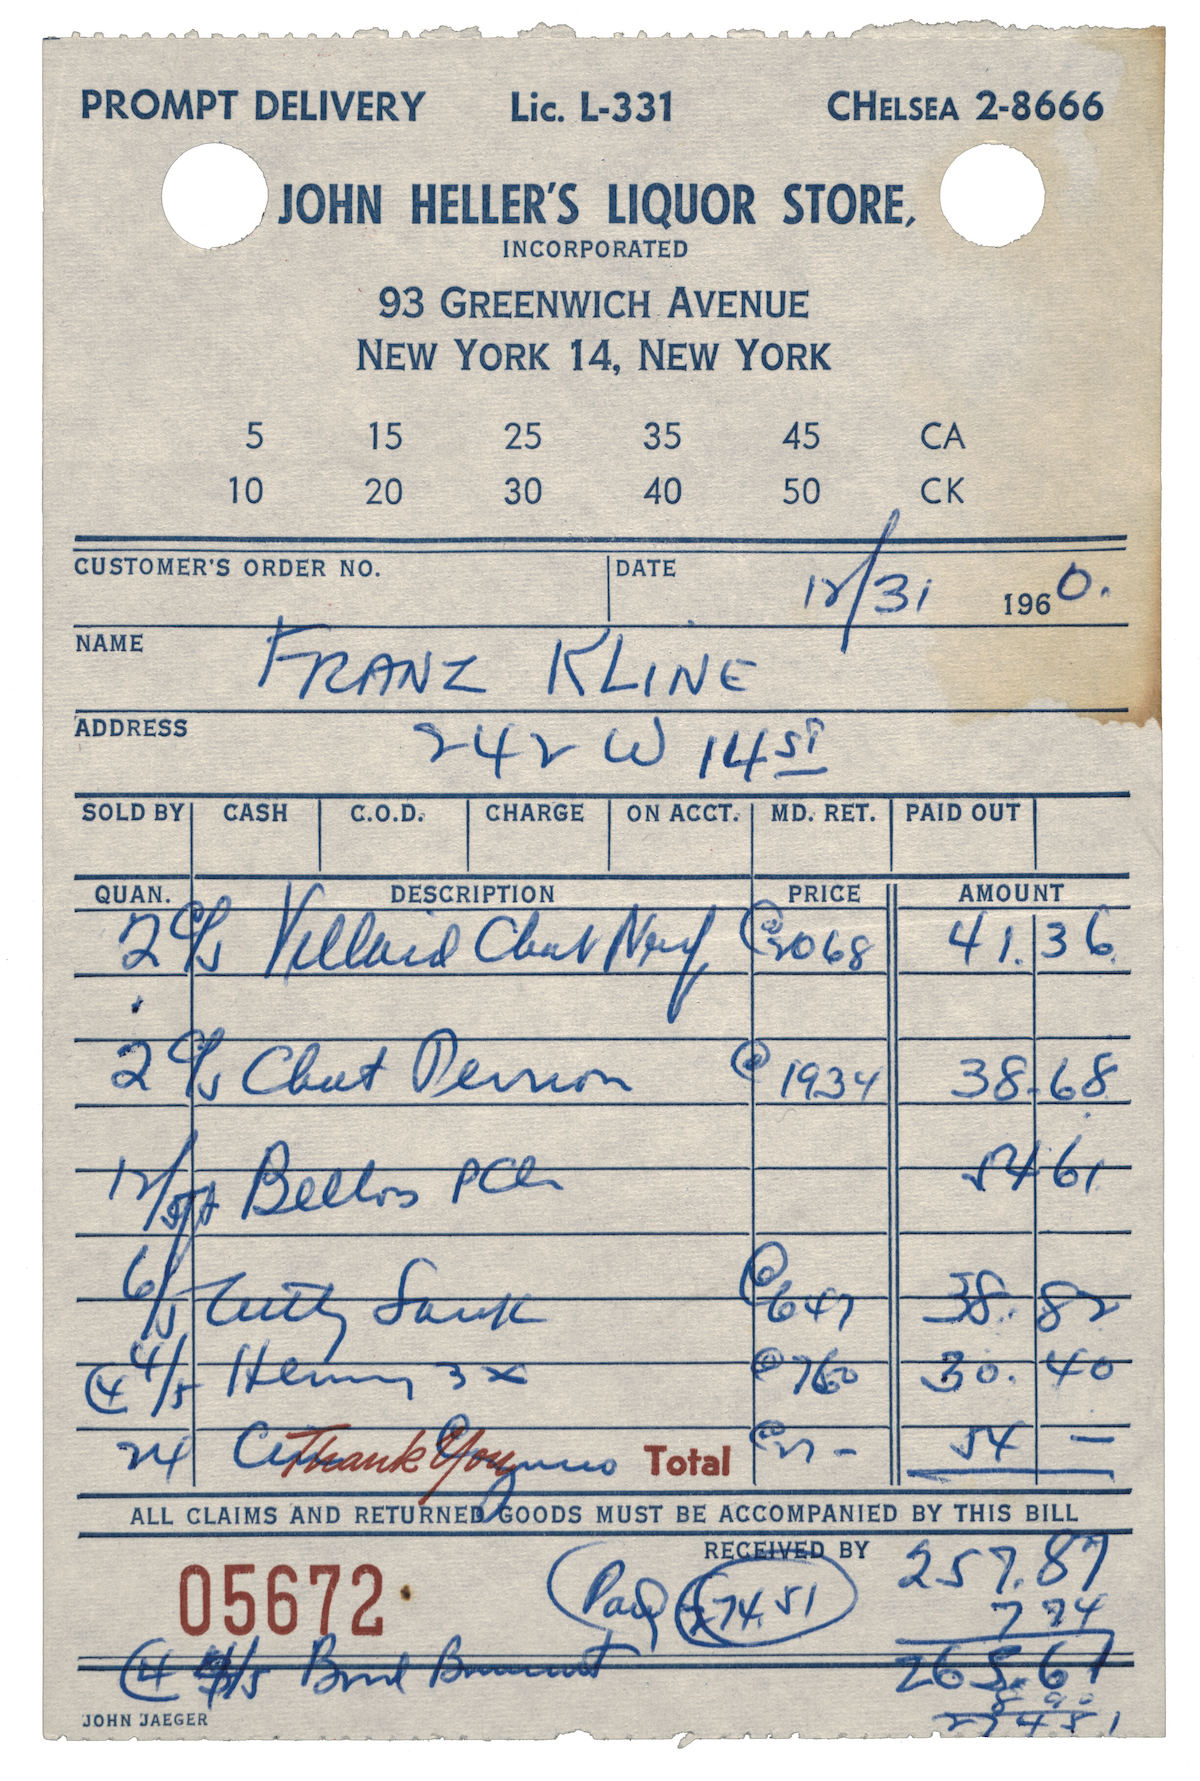 PROMPT DELIVERY Lic. L-331 CHELSEA 2-8666
JOHN HELLER'S LIQUOR STORE,
INCORPORATED
93 GREENWICH AVENUE
NEW YORK 14, NEW YORK
5 15 25 35 45 CA
10 20 30 40 50 CK
CUSTOMER'S ORDER NO. DATE 12/31 1960.
NAME FRANZ KLINE
ADDRESS 242 W 14 ST
SOLD BY CASH C.O.D. CHARGE ON ACCT. MD. RET. PAID OUT
QUAN. DESCRIPTION PRICE AMOUNT
2 C/5 Chat Neuf @ 2068 41.36
2 C/5 Chat @ 1934 38.68
12/ Bellows 54 61
6/5 Cutty Sark @ 647 38.82
4/5 Henny 3x @ 760 30.40
24 Thank You Total @ 27 - 54 —
ALL CLAIMS AND RETURNED GOODS MUST BE ACCOMPANIED BY THIS BILL
RECEIVED BY 257.87
05672 Paid 274.51 7 74
4/5 265.61
JOHN JAEGER 8 90
274 51